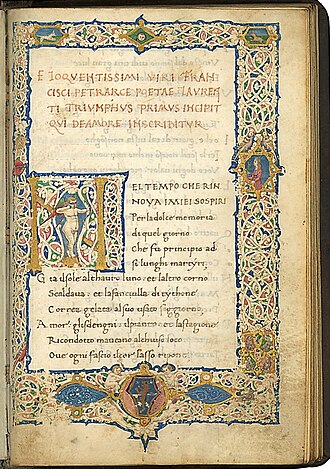 ELOQVENTISSIMI VIRI FRAN
CISCI PETRARCE POETAE LAVREN
TI TRIVMPHVS PRIMVS INCIPIT
QVI DE AMORE INSCRIBITVR
NEL TEMPO CHE RIN
NOVA I MIEI SOSPIRI
Per la dolce memoria
di quel giorno
Che fu principio ad
si lunghi martyri
Gia il sole al thauro luno. et laltro corno
Scaldaua. et la fanciulla di tythone
Correa gelata al suo usato soggiorno.
Amor. gli sdengni. il pianto. et la stagione
Ricondotto maueano al chiuso loco
Oue ogni fascio el cor lasso ripone